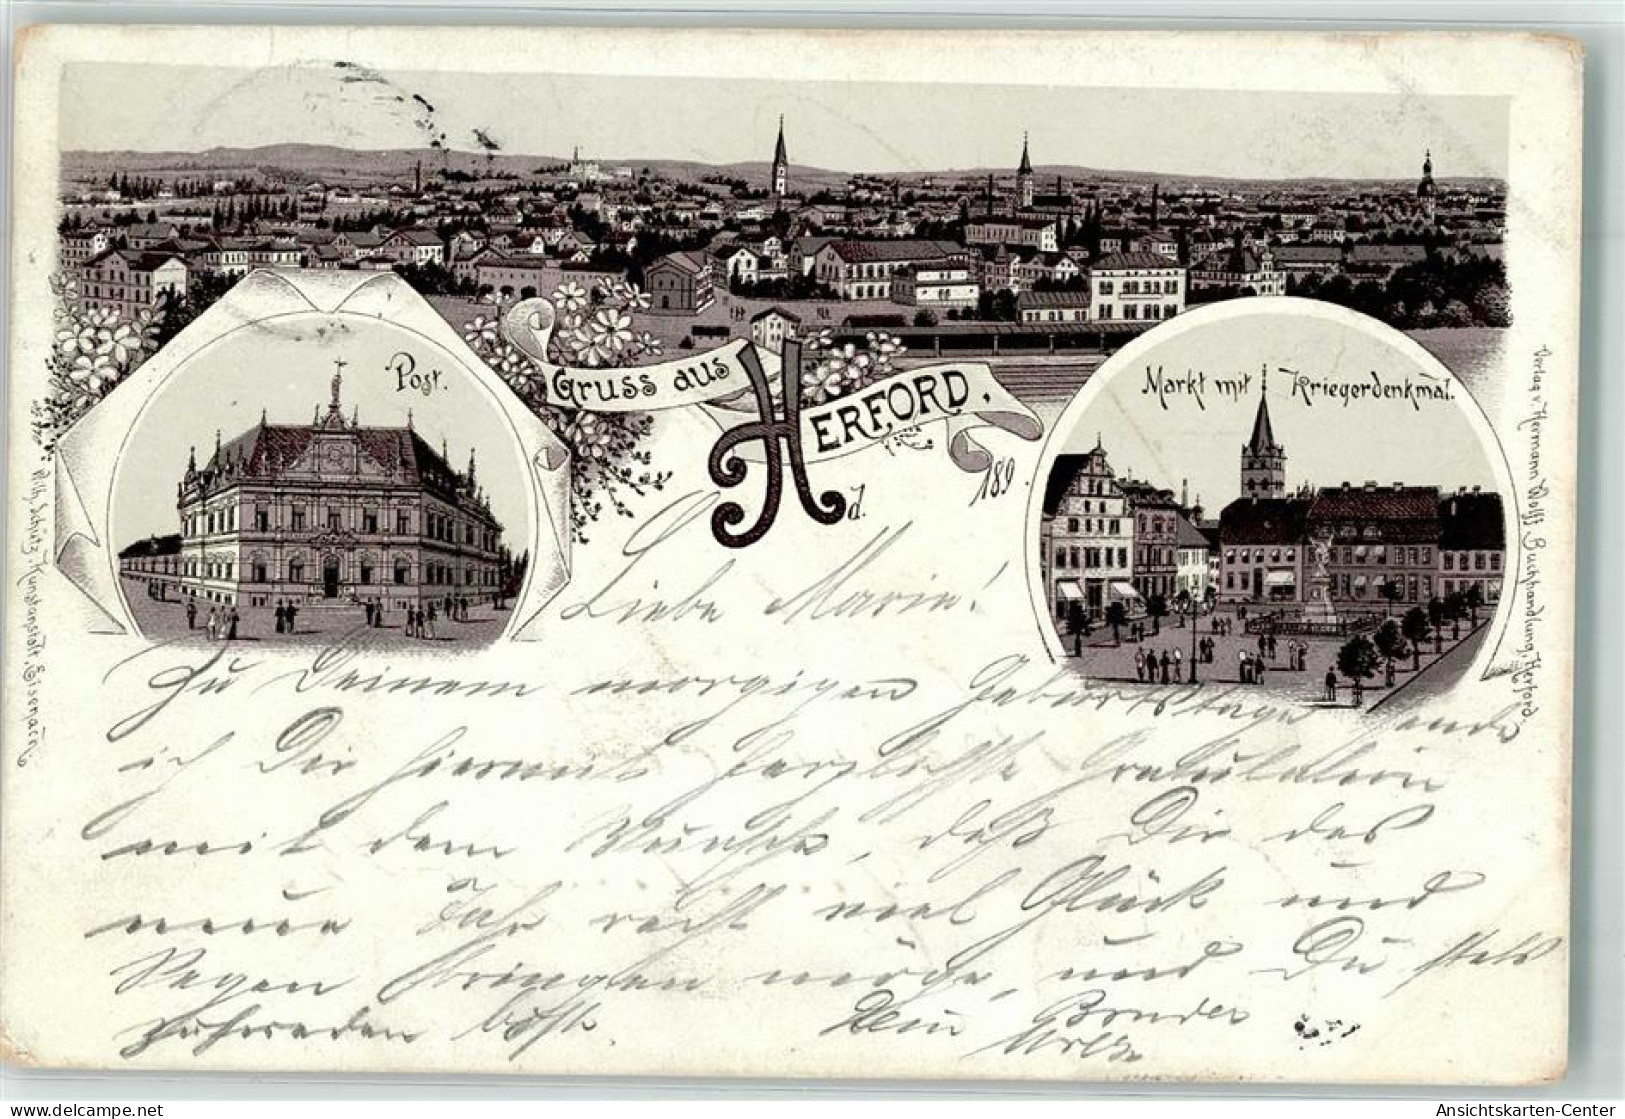 Post.
Gruss aus
HERFORD.
d. 189 .
Markt mit Kriegerdenkmal.
Verlag v. Hermann Wolff Buchhandlung, Herford.
Wilh. Schütz, Kunstanstalt, Eisenach.
Liebe Marie!
Zu Deinem morgigen Geburtstage sende
ich Dir hiermit herzlichste Gratulation
mit dem Wunsche, daß Dir das
neue Jahr recht viel Glück und
Segen bringen möge, und Du stets
zufrieden bist.
Dein Bruder
delcampe.net
Ansichtskarten-Center